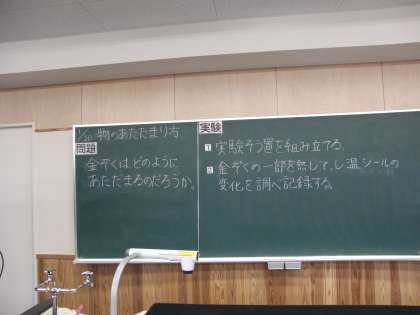 1/20 物のあたたまり方
問題
金ぞくは、どのように
あたたまるのだろうか。
実験
1 実験そう置を組み立てる。
2 金ぞくの一部を熱して、し温シールの
変化を調べ記録する。